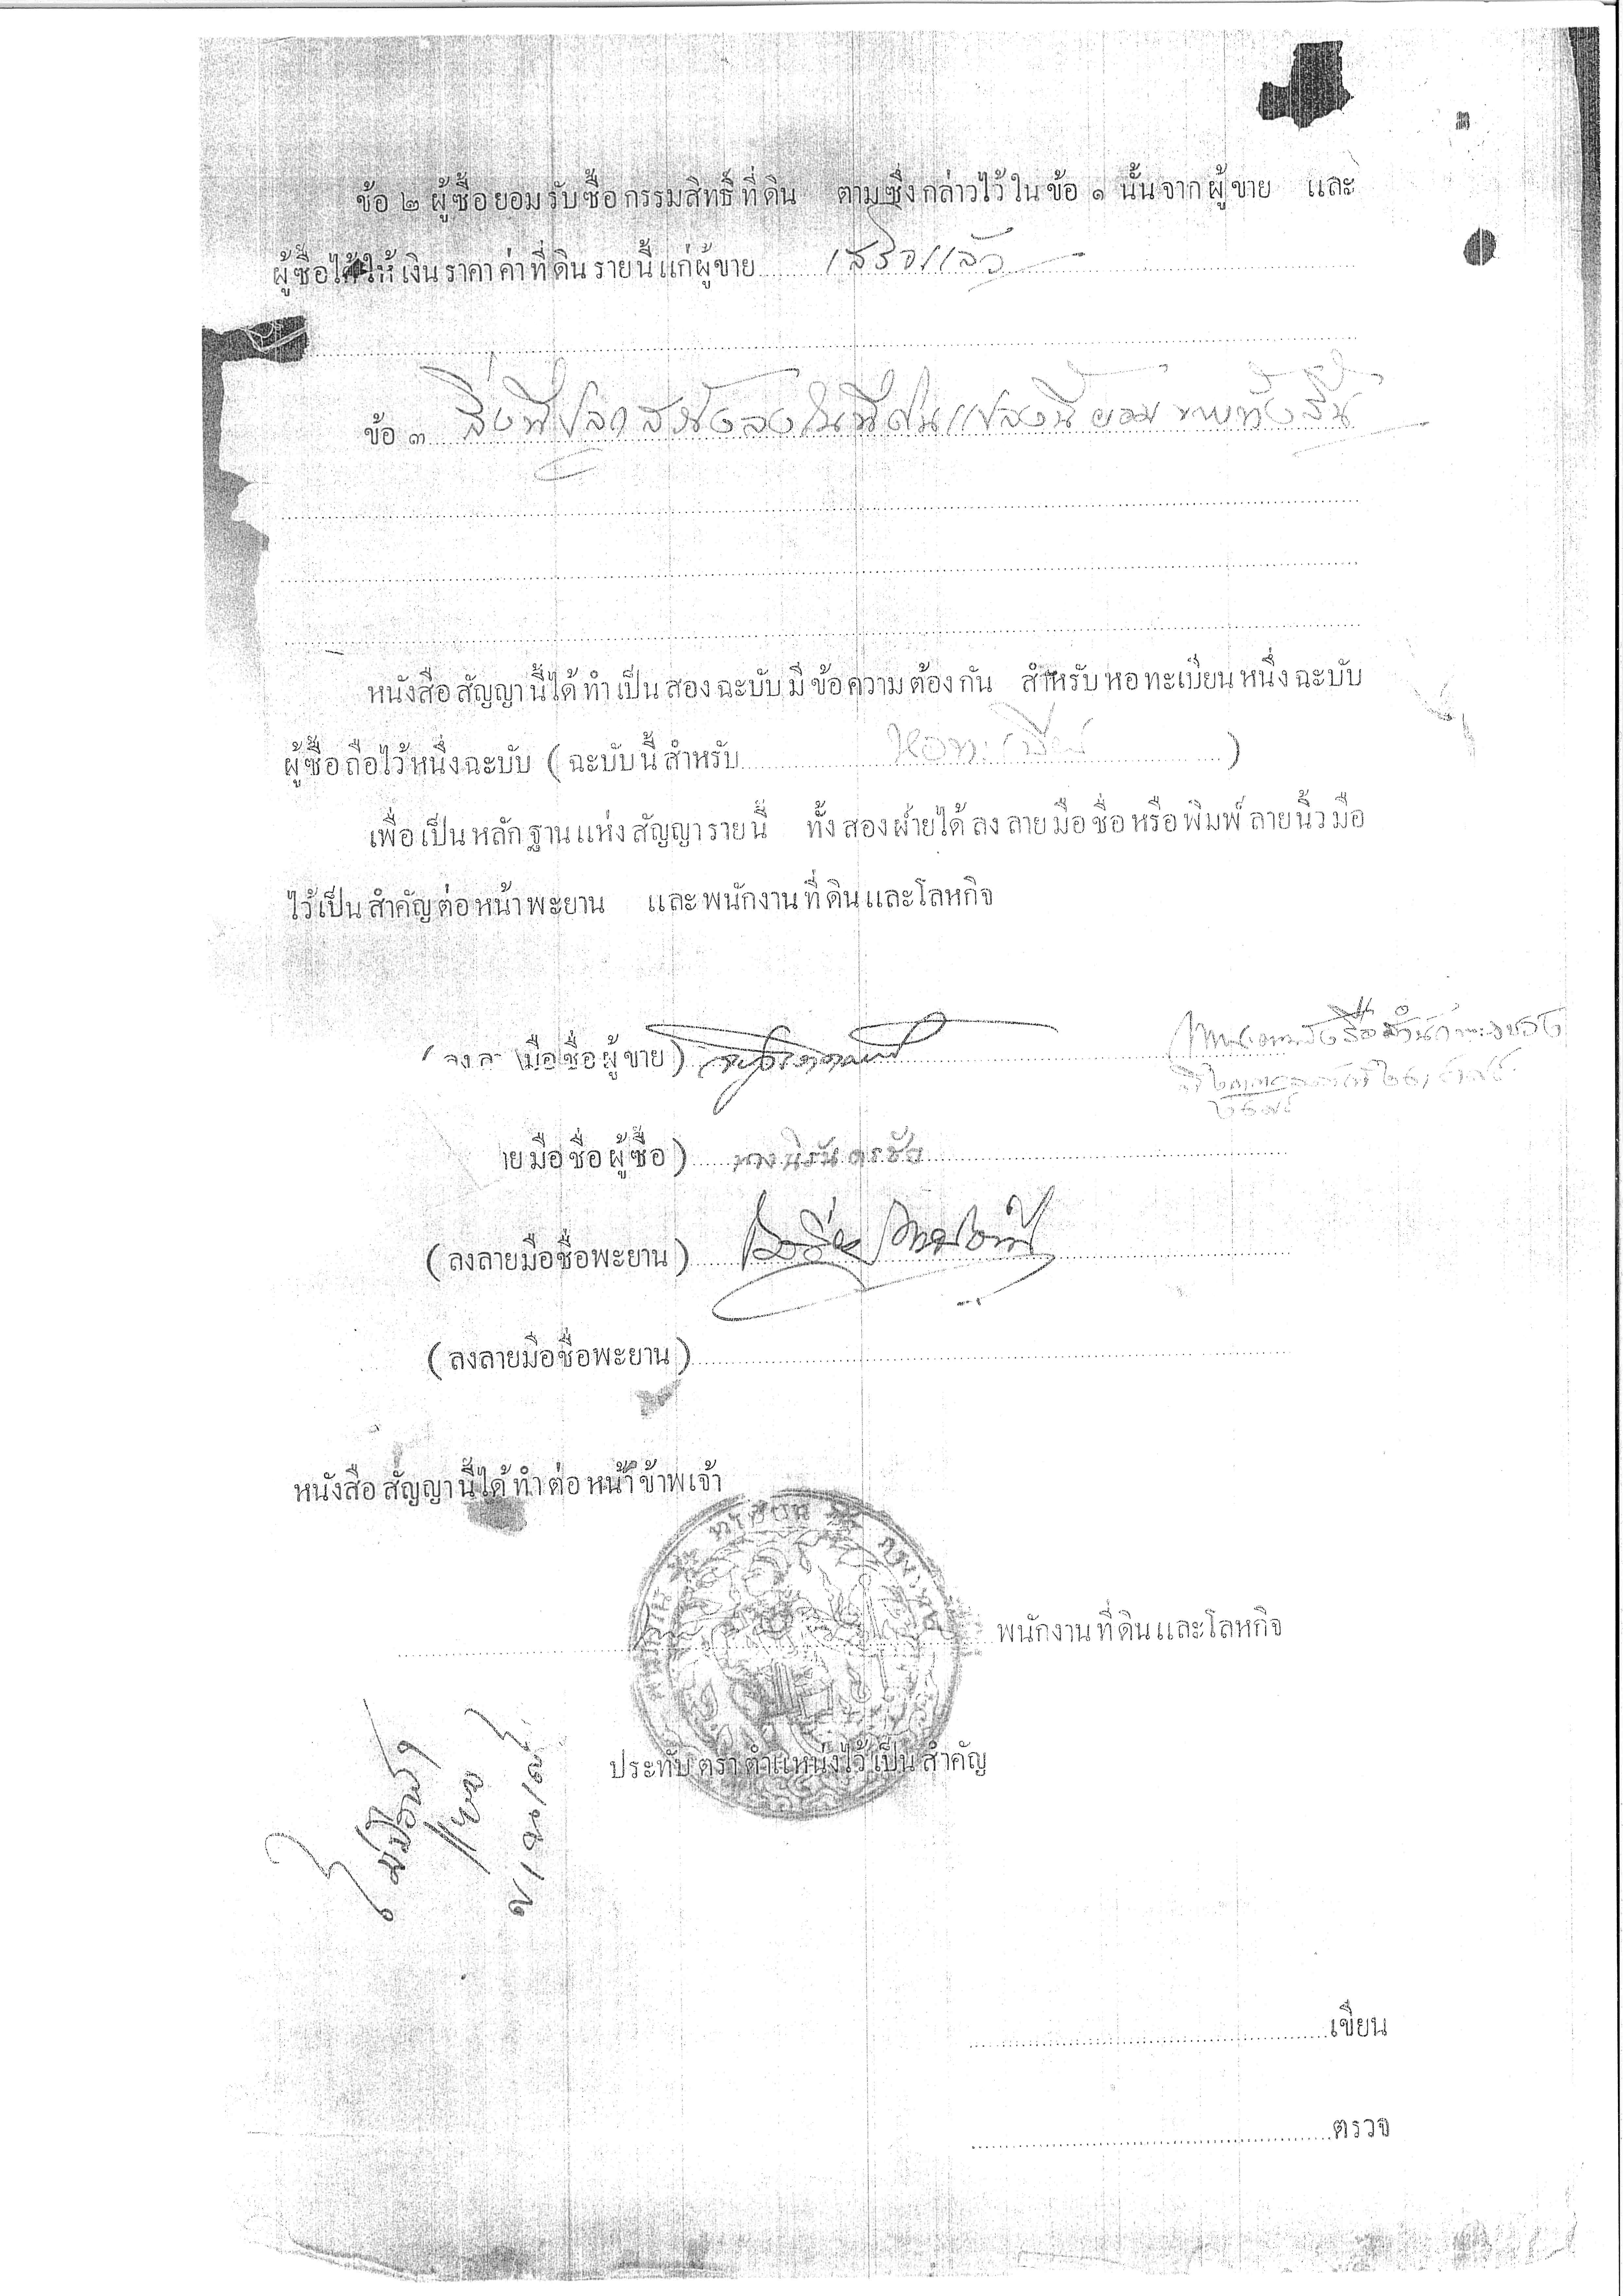 ข้อ ๒ ผู้ซื้อยอมรับซื้อกรรมสิทธิ์ที่ดิน ตามซึ่งกล่าวไว้ในข้อ ๑ นั้นจากผู้ขาย และ
ผู้ซื้อได้ให้เงินราคาค่าที่ดินรายนี้แก่ผู้ขาย เสร็จแล้ว
ข้อ ๓ สิ่งที่ปลูกสร้างลงในที่ดินแปลงนี้ยอมขายทั้งสิ้น
หนังสือสัญญานี้ได้ทำเป็นสองฉะบับมีข้อความต้องกัน สำหรับหอทะเบียนหนึ่งฉะบับ
ผู้ซื้อถือไว้หนึ่งฉะบับ (ฉะบับนี้สำหรับ หอทะเบียน )
เพื่อเป็นหลักฐานแห่งสัญญารายนี้ ทั้งสองฝ่ายได้ลงลายมือชื่อหรือพิมพ์ลายนิ้วมือ
ไว้เป็นสำคัญต่อหน้าพะยาน และพนักงานที่ดินและโลหกิจ
มือชื่อผู้ขาย)
ายมือชื่อผู้ซื้อ) นิรันดรชัย
(ลงลายมือชื่อพะยาน)
(ลงลายมือชื่อพะยาน)
หนังสือสัญญานี้ได้ทำต่อหน้าข้าพเจ้า
ทะเบียน
พนักงานที่ดินและโลหกิจ
ประทับตราตำแหน่งไว้เป็นสำคัญ
เขียน
ตรวจ